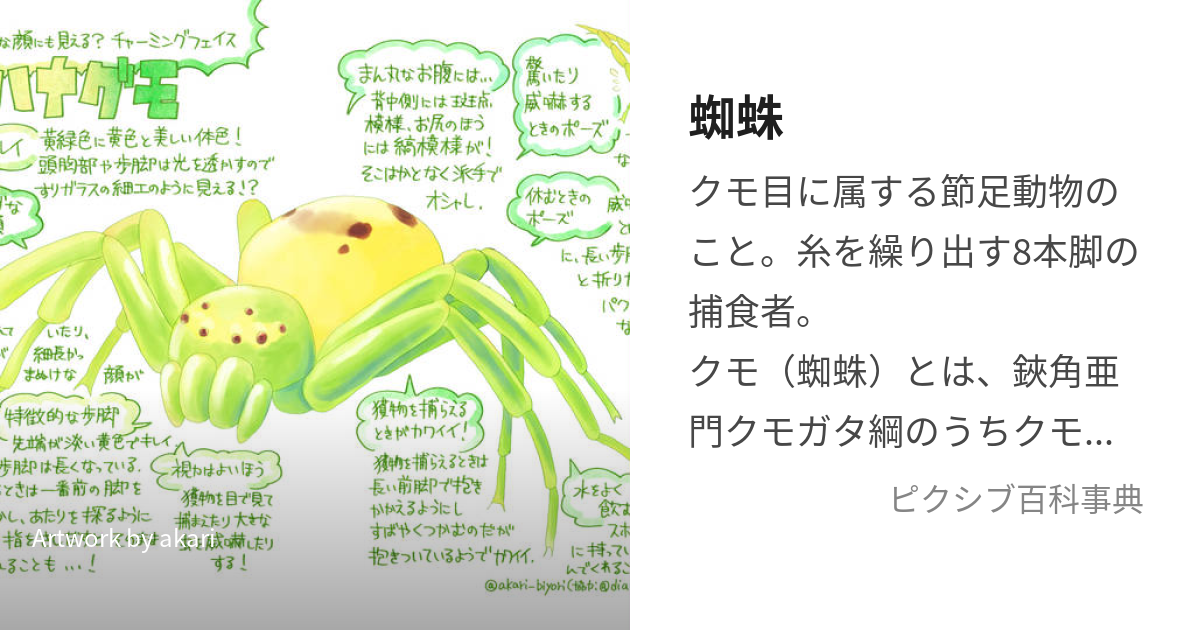 な顔にも見える? チャーミングフェイス
ハナグモ
レイ
黄緑色に黄色と美しい体色!
頭胸部や歩脚は光を透かすので
すりガラスの細工のように見える!?
まん丸なお腹には...
背中側には斑点
模様、お尻のほう
には縞模様が!
そこはかとなく派手で
オシャレ.
驚いたり
威嚇する
ときのポーズ
休むときの
ポーズ
に、長い歩脚
と折り
パク
いたり、
細長かっ
まぬけな
顔が
特徴的な歩脚
先端が淡い黄色でキレイ
歩脚は長くなっている.
ときは一番前の脚を
かし、あたりを探るように
ることも...!
視力はよいほう
獲物を目で見て
捕まえたり大きな
する!
獲物を捕らえる
ときがカワイイ!
獲物を捕らえるときは
長い前脚で抱き
かかえるようにし
すばやくつかむのだが
抱きついているようでカワイイ.
水をよく
飲む
に持ってい
んでくれるこ
@akari-biyori(協力:@dia
Artwork by akari
蜘蛛
クモ目に属する節足動物の
こと。糸を繰り出す8本脚の
捕食者。
クモ（蜘蛛）とは、鋏角亜
門クモガタ綱のうちクモ...
ピクシブ百科事典